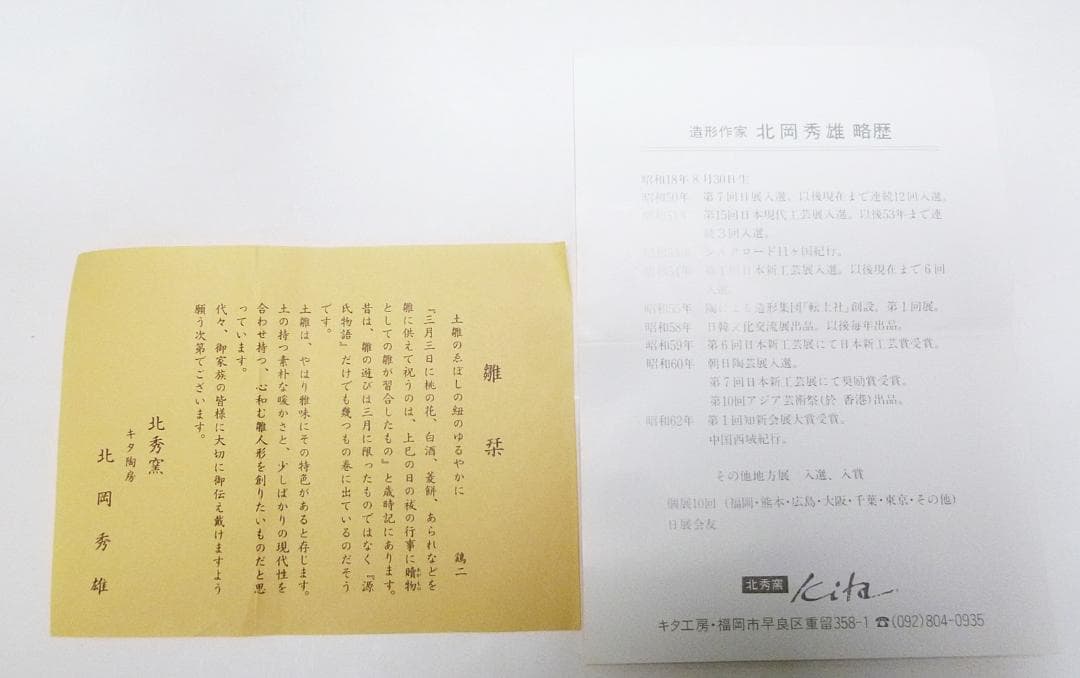 雛栞
土雛のゑぼしの紐のゆるやかに 鶏二
『三月三日に桃の花、白酒、菱餅、あられなどを
雛に供えて祝うのは、上巳の日の祓の行事に贖物
としての雛が習合したもの』と歳時記にあります。
昔は、雛の遊びは三月に限ったものではなく『源
氏物語』だけでも幾つもの巻に出ているのだそう
です。
土雛は、やはり雅味にその特色があると存じます。
土の持つ素朴な暖かさと、少しばかりの現代性を
合わせ持つ、心和む雛人形を創りたいものだと思
っています。
代々、御家族の皆様に大切に御伝え戴けますよう
願う次第でございます。
北秀窯
キタ陶房
北岡秀雄
造形作家 北岡秀雄 略歴
昭和18年8月30日生
昭和50年 第7回日展入選。以後現在まで連続12回入選。
昭和51年 第15回日本現代工芸展入選。以後53年まで連
続3回入選。
シルクロード11ヶ国紀行。
昭和54年 第1回日本新工芸展入選。以後現在まで6回
入選。
昭和55年 陶による造形集団「転土社」創設。第1回展。
昭和58年 日韓文化交流展出品。以後毎年出品。
昭和59年 第6回日本新工芸展にて日本新工芸賞受賞。
昭和60年 朝日陶芸展入選。
第7回日本新工芸展にて奨励賞受賞。
第10回アジア芸術祭(於 香港)出品。
昭和62年 第1回知新会展大賞受賞。
中国西域紀行。
その他地方展 入選、入賞
個展10回 (福岡・熊本・広島・大阪・千葉・東京・その他)
日展会友
北秀窯 Kita
キタ工房・福岡市早良区重留358-1 ☎(092)804-0935